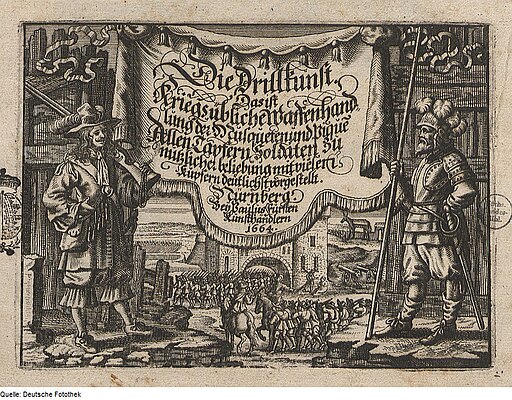 Die Drillkunst,
Das ist
Kriegsübliche Waffenhand
lung der Musqueten und Pique
Allen Tapfern Soldaten zu
nützlicher beliebung mit vielen
Kupfern deutlichst vorgestellt.
Nürnberg
Bey Paulus Fürsten
Kunsthändlern
1664.
Quelle: Deutsche Fotothek